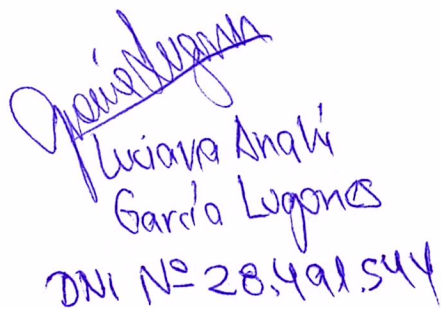 García Lugones
Luciana Analí
García Lugones
DNI Nº 28.491.544